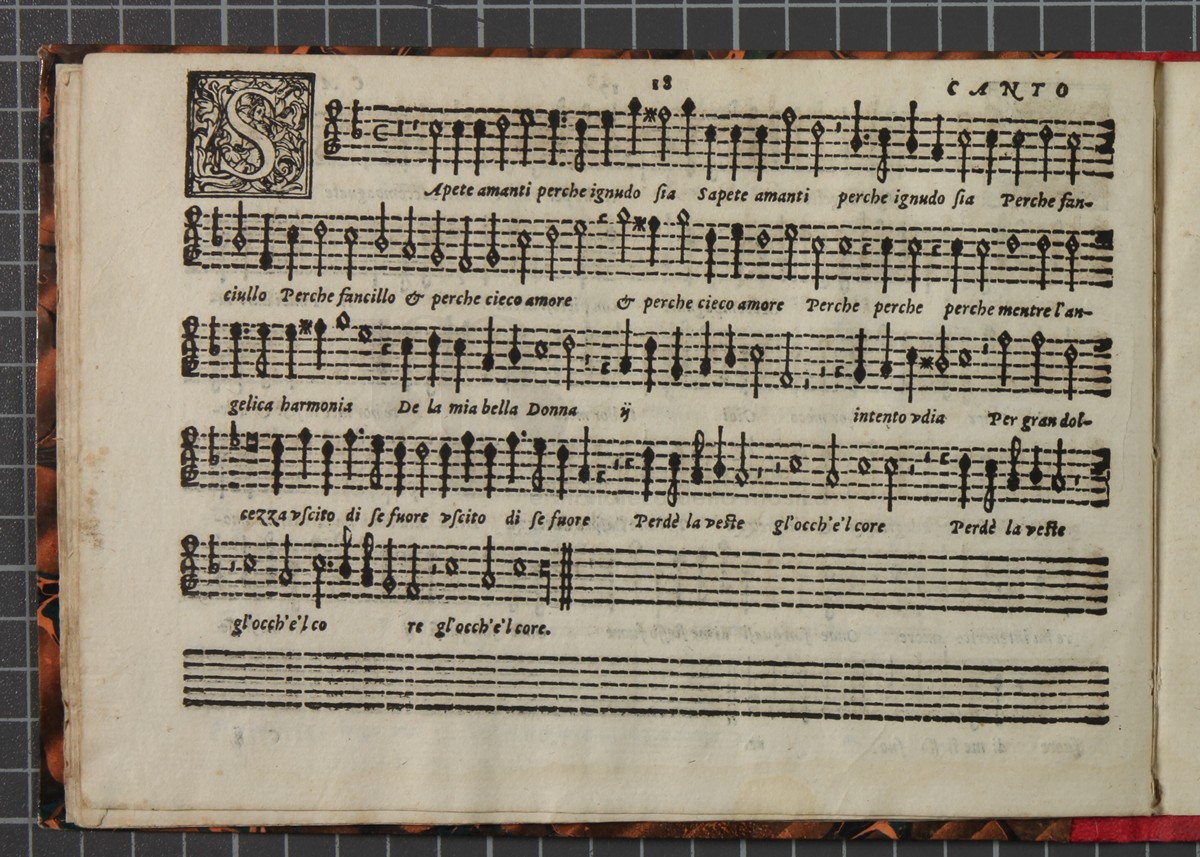 18 CANTO
S
Apete amanti perche ignudo sia Sapete amanti perche ignudo sia Perche fan-
ciullo Perche fancillo & perche cieco amore & perche cieco amore Perche perche perche mentre l'an-
gelica harmonia De la mia bella Donna ij intento vdia Per gran dol-
cezza vscito di se fuore vscito di se fuore Perdè la veste gl'occh'e'l core Perdè la veste
gl'occh'e'l co re gl'occh'e'l core.